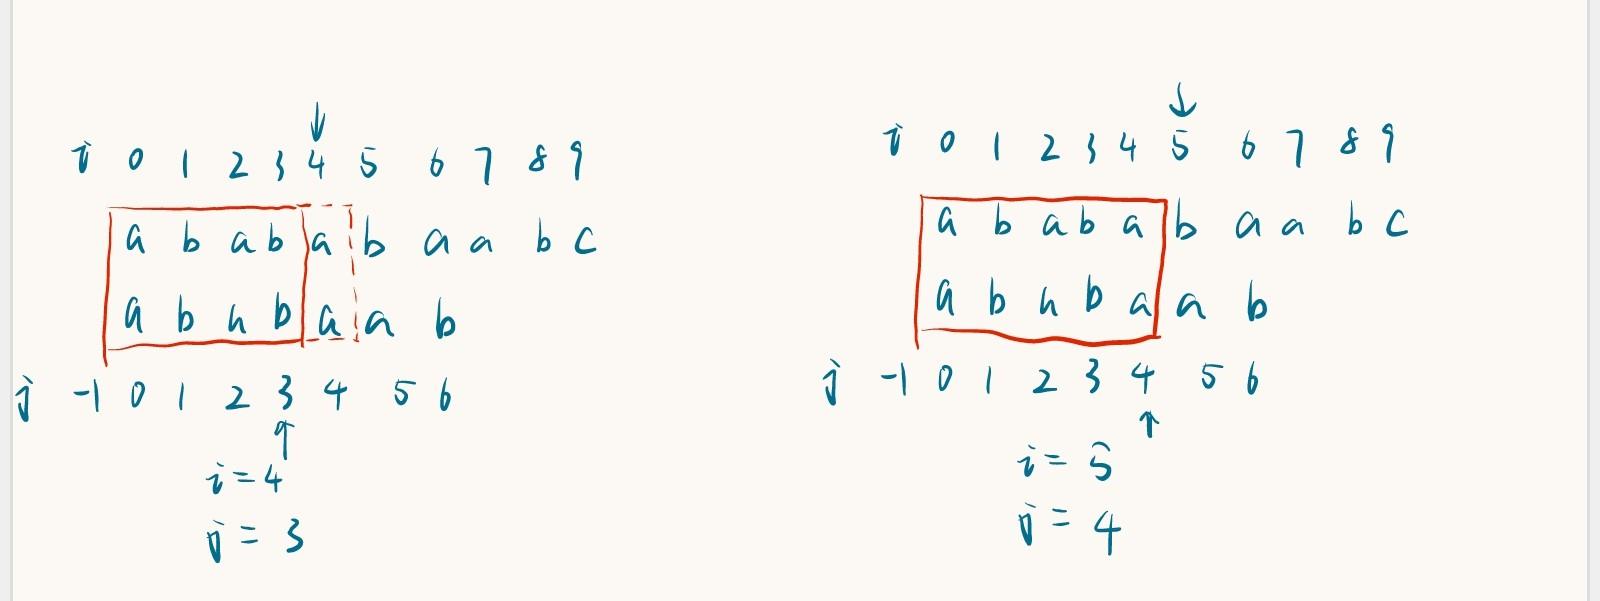 i 0 1 2 3 4 5 6 7 8 9
a b a b a b a a b c
a b a b a a b
j -1 0 1 2 3 4 5 6
i = 4
j = 3
i 0 1 2 3 4 5 6 7 8 9
a b a b a b a a b c
a b a b a a b
j -1 0 1 2 3 4 5 6
i = 5
j = 4